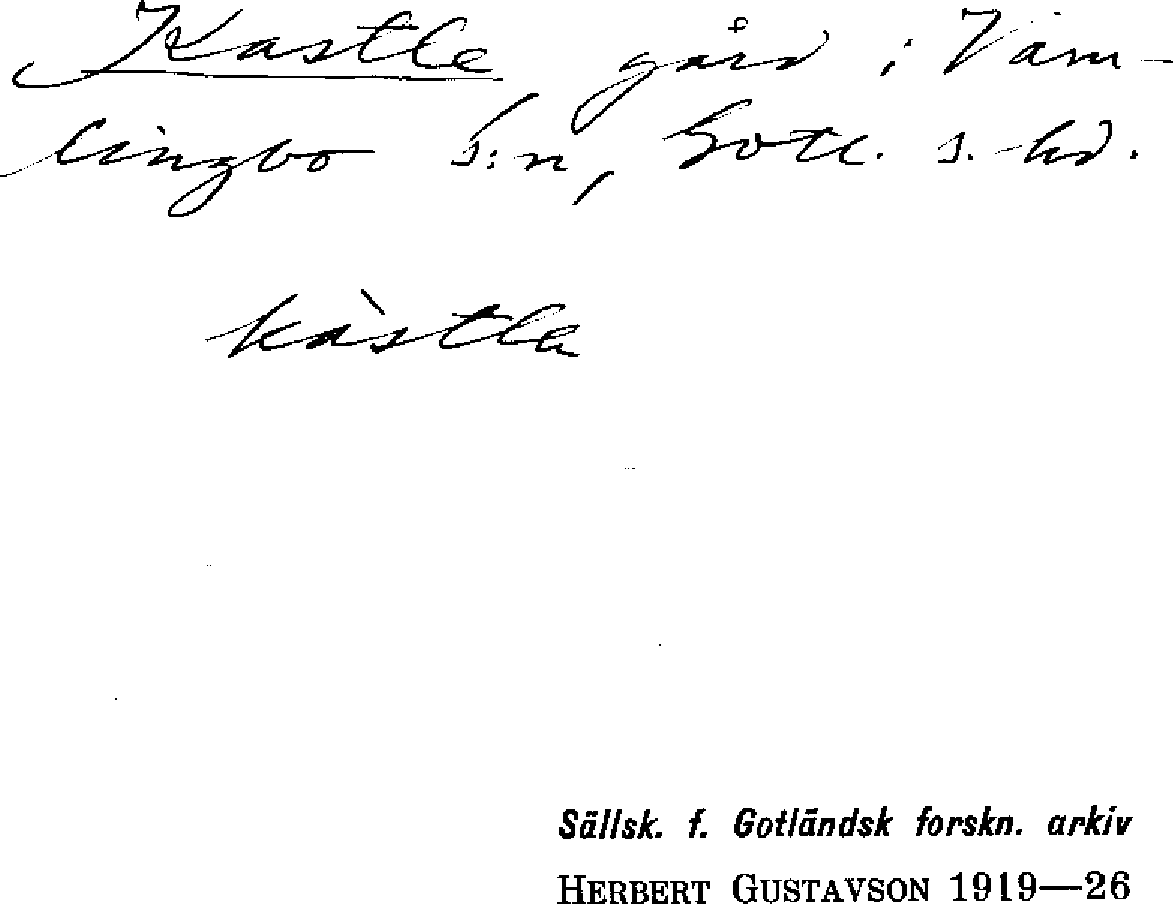 Kastle gård i Väm-
lingbo s:n, Gotl. s. hd.
kàstla
Sällsk. f. Gotländsk forskn. arkiv
HERBERT GUSTAVSON 1919—26